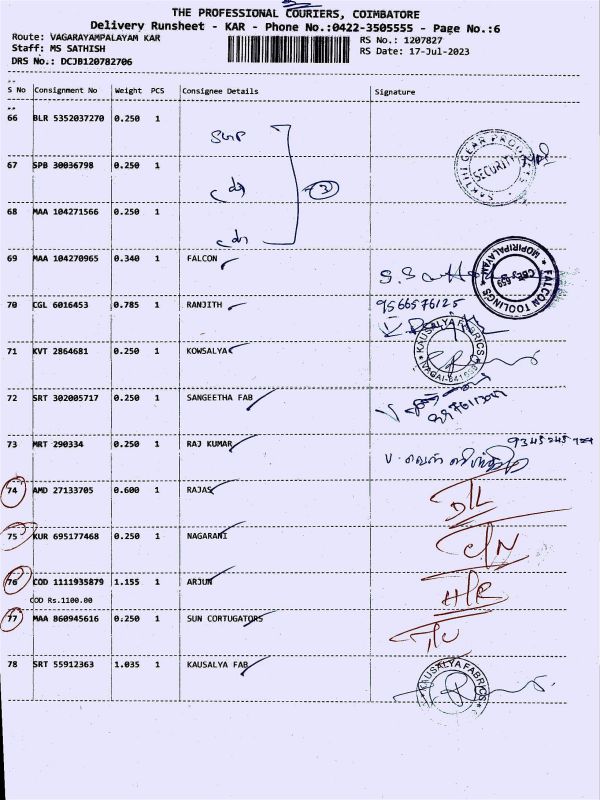 THE PROFESSIONAL COURIERS, COIMBATORE
Delivery Runsheet - KAR - Phone No.:0422-3505555 - Page No.:6
Route: VAGARAYAMPALAYAM KAR
RS No.: 1207827
Staff: MS SATHISH
RS Date: 17-Jul-2023
DRS No.: DCJB120782706
S No Consignment No Weight PCS Consignee Details Signature
66 BLR 5352037270 0.250 1
67 SPB 30036798 0.250 1
SAKTHI GEAR PRODUCTS
SECURITY
3
68 MAA 104271566 0.250 1
69 MAA 104270965 0.340 1 FALCON
FALCON TOOLINGS
MOPIRIPALAYAM
CBE-659
70 CGL 6016453 0.785 1 RANJITH
9566576125
71 KVT 2864681 0.250 1 KOWSALYA
KAUSALYA FABRICS
72 SRT 302005717 0.250 1 SANGEETHA FAB
73 MRT 290334 0.250 1 RAJ KUMAR
74 AMD 27133705 0.600 1 RAJAS
D/L
75 KUR 695177468 0.250 1 NAGARANI
C/N
76 COD 1111935879 1.155 1 ARJUN
COD Rs.1100.00
H/R
77 MAA 860945616 0.250 1 SUN CORTUGATORS
78 SRT 55912363 1.035 1 KAUSALYA FAB
KAUSALYA FABRICS